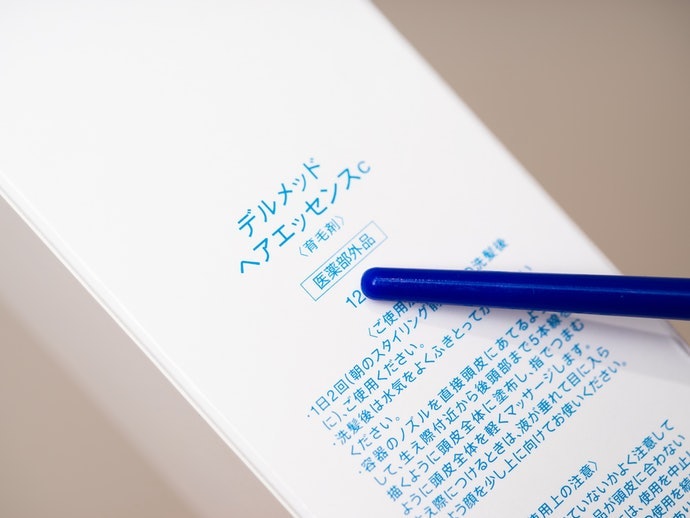 デルメッド
ヘアエッセンスC
〈育毛剤〉
医薬部外品
12
〈ご使用 洗髪後
・1日2回(朝のスタイリング前
に)、ご使用ください。
・洗髪後は水気をよくふきとってか
ください。
・容器のノズルを直接頭皮にあてるよう
して、生え際付近から後頭部まで5本線を
描くように頭皮全体に塗布し、指でつまむ
ように頭皮全体を軽くマッサージします。
え際につけるときは、液が垂れて目に入ら
よう顔を少し上に向けてお使いください。
使用上の注意〉
ていないかよく注意して
品が頭皮に合わない
は、使用を中止
使用を続